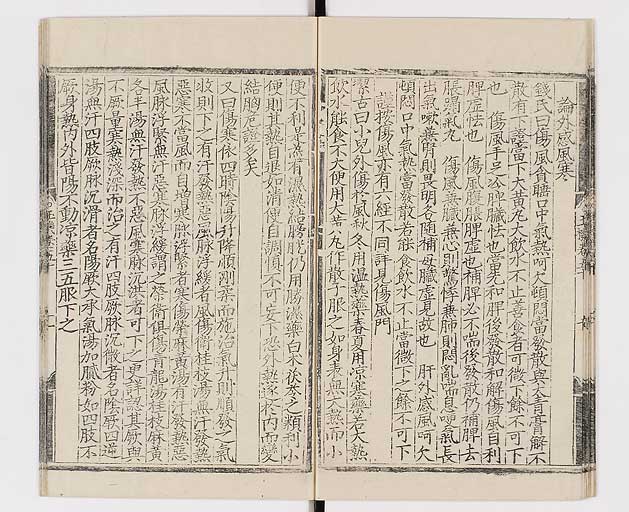 論外感風寒
錢氏曰傷風者睡口中氣熱呵欠頓悶當發散與大青膏解不
散有下證當下大黃丸大飲水不止善食者可微下餘不可下
也 傷風手足冷脾臟怯也當先和脾後發散和解傷風自利
脾虛怯也 傷風腹脹脾虛也補脾必不喘後發散仍補脾去
脹塌氣丸 傷風兼臟兼心則驚悸兼肺則悶亂喘息哽氣長
出氣嗽兼腎則畏明各隨補母臟虛見故也 肝外感風呵欠
頓悶口中氣熱當發散若能食飲水不止當微下之餘不可下
謹按傷風亦有六經不同詳見傷風門
潔古曰小兒外傷於風秋冬用溫熱藥春夏用涼寒藥若大熱
飲水能食不大便用大黃丸作散子服之如身表無大熱而小
便不利是有濕熱結膀胱仍用勝濕藥白朮茯苓之類利小
便則其熱自退如消便自調慎不可妄下恐外熱逐於內而變
結胸危證多矣
又曰傷寒依四時陰陽升降順則桨而施治氣升則順發之氣
收則下之有汗發熱惡風脉浮緩者風傷衛桂枝湯無汗發熱
惡寒不當風而自增寒脉浮緊者寒傷榮麻黃湯有汗發熱惡
風脉浮緊無汗惡寒脉浮緩謂之榮衛俱傷青龍湯桂枝麻黃
各半湯無汗發熱不惡風寒脉沉緊者可下之更詳認其厥與
不厥量寒熱淺深而治之有汗四肢厥脉沉微者名陰厥四逆
湯無汗四肢厥脉沉滑者名陽厥大承氣湯加膩粉如四肢不
厥身熱內外皆陽不動涼藥三五服下之